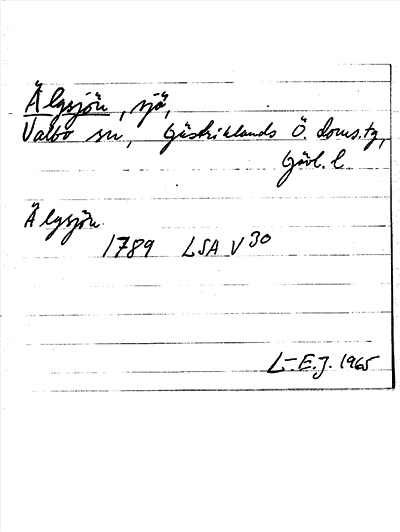 Älgsjön, sjö,
Valbo sn, Gästriklands Ö. doms.tg,
Gävl. l.
Älgsjön.
1789 LSA V 30
L-E.J. 1965